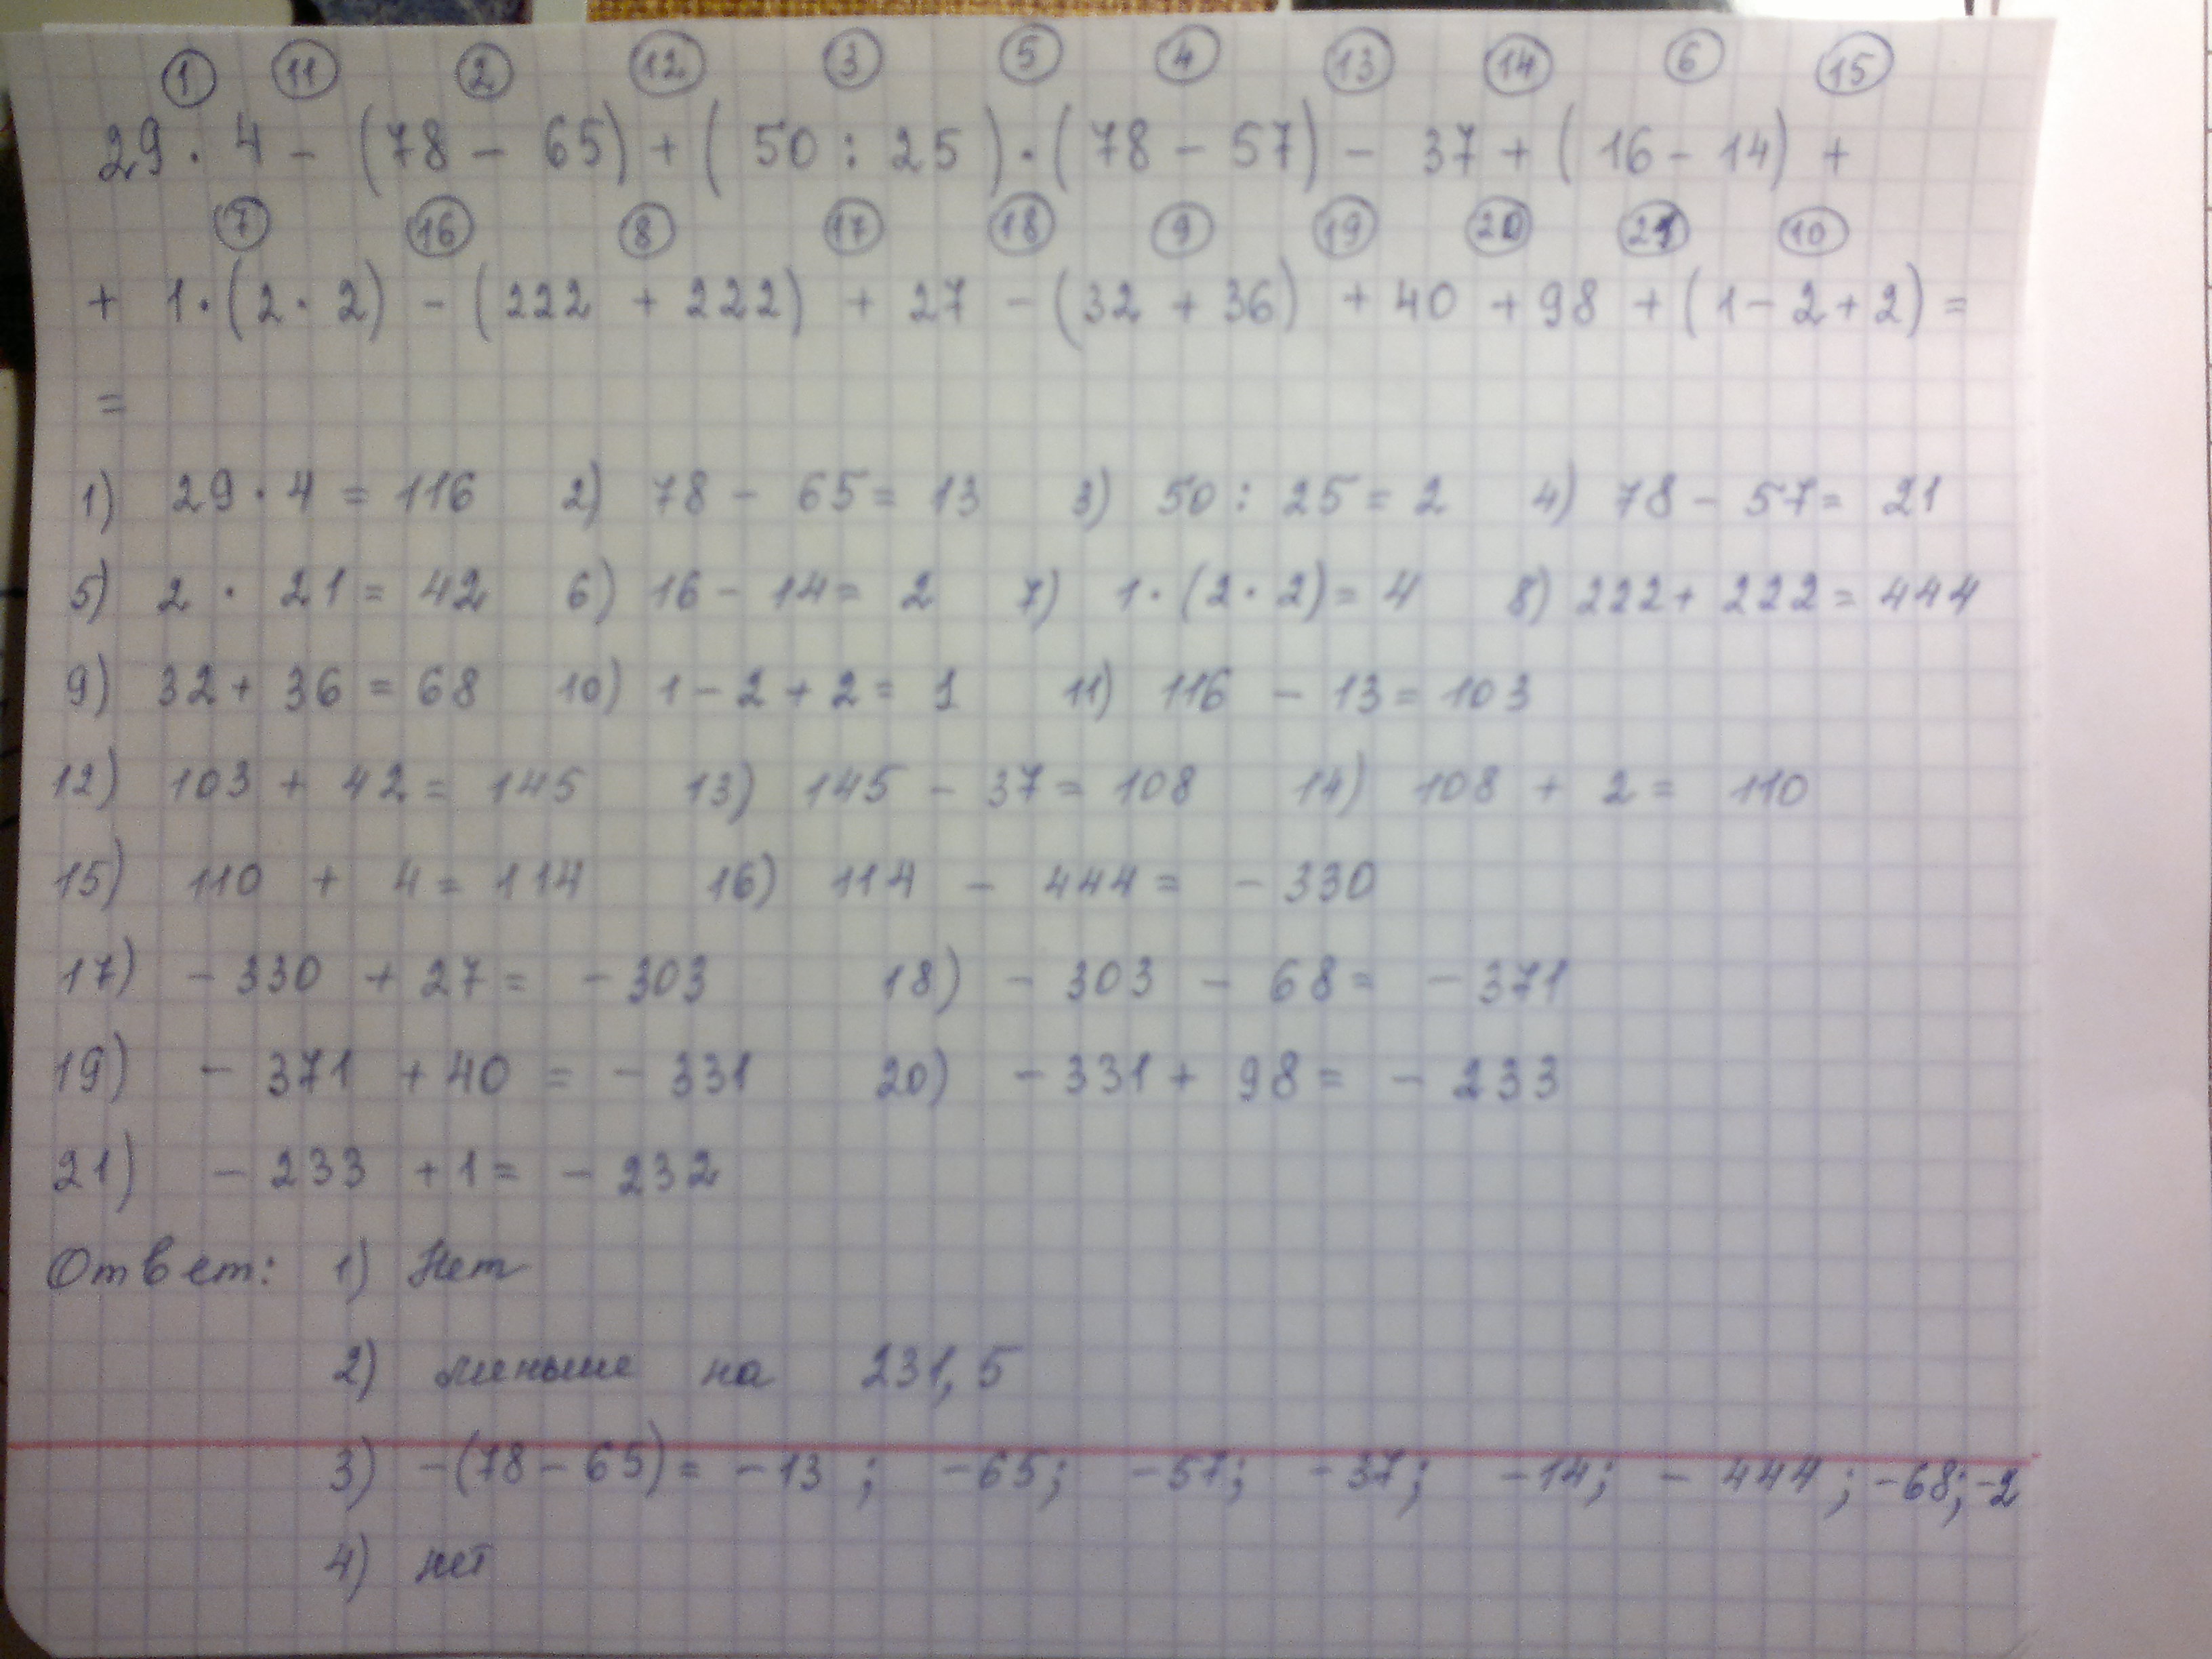 1 11 2 12 3 5 4 13 14 6 15
29 · 4 - (78 - 65) + (50 : 25) · (78 - 57) - 37 + (16 - 14) +
7 16 8 17 18 9 19 20 21 10
+ 1 · (2 · 2) - (222 + 222) + 27 - (32 + 36) + 40 + 98 + (1 - 2 + 2) =
=
1) 29 · 4 = 116 2) 78 - 65 = 13 3) 50 : 25 = 2 4) 78 - 57 = 21
5) 2 · 21 = 42 6) 16 - 14 = 2 7) 1 · (2 · 2) = 4 8) 222 + 222 = 444
9) 32 + 36 = 68 10) 1 - 2 + 2 = 1 11) 116 - 13 = 103
12) 103 + 42 = 145 13) 145 - 37 = 108 14) 108 + 2 = 110
15) 110 + 4 = 114 16) 114 - 444 = - 330
17) - 330 + 27 = - 303 18) - 303 - 68 = - 371
19) - 371 + 40 = - 331 20) - 331 + 98 = - 233
21) - 233 + 1 = - 232
Ответ: 1) Нет
2) меньше на 231,5
3) -(78 - 65) = -13 ; -65; -57; -37; -14; - 444 ; -68; -2
4) нет